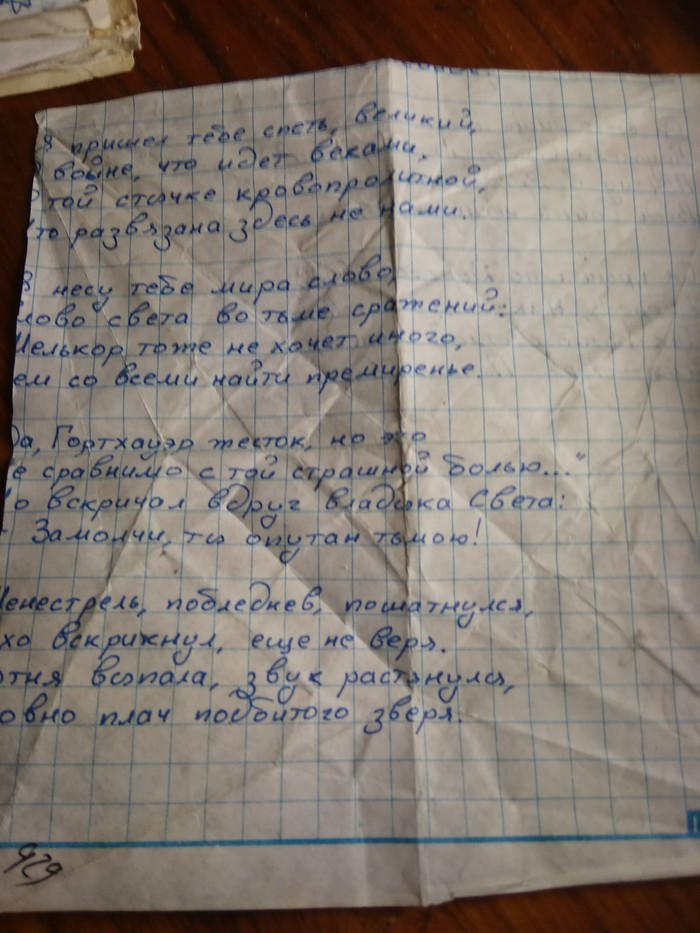 Я пришел тебе спеть, великий,
войне, что идет веками,
той стычке кровопролитной,
что развязана здесь не нами.
Я несу тебе мира слово,
лово света во тьме сражений:
Мелькор тоже не хочет иного,
ем со всеми найти премиренье.
Да, Гортхауэр жесток, но это
е сравнимо с той страшной болью..."
о вскричал вдруг владыка Света:
- Замолчи, ты опутан тьмою!
Менестрель, побледнев, пошатнулся,
хо вскрикнул, еще не веря.
ютня впала, звук растянулся,
овно плач подбитого зверя.
929